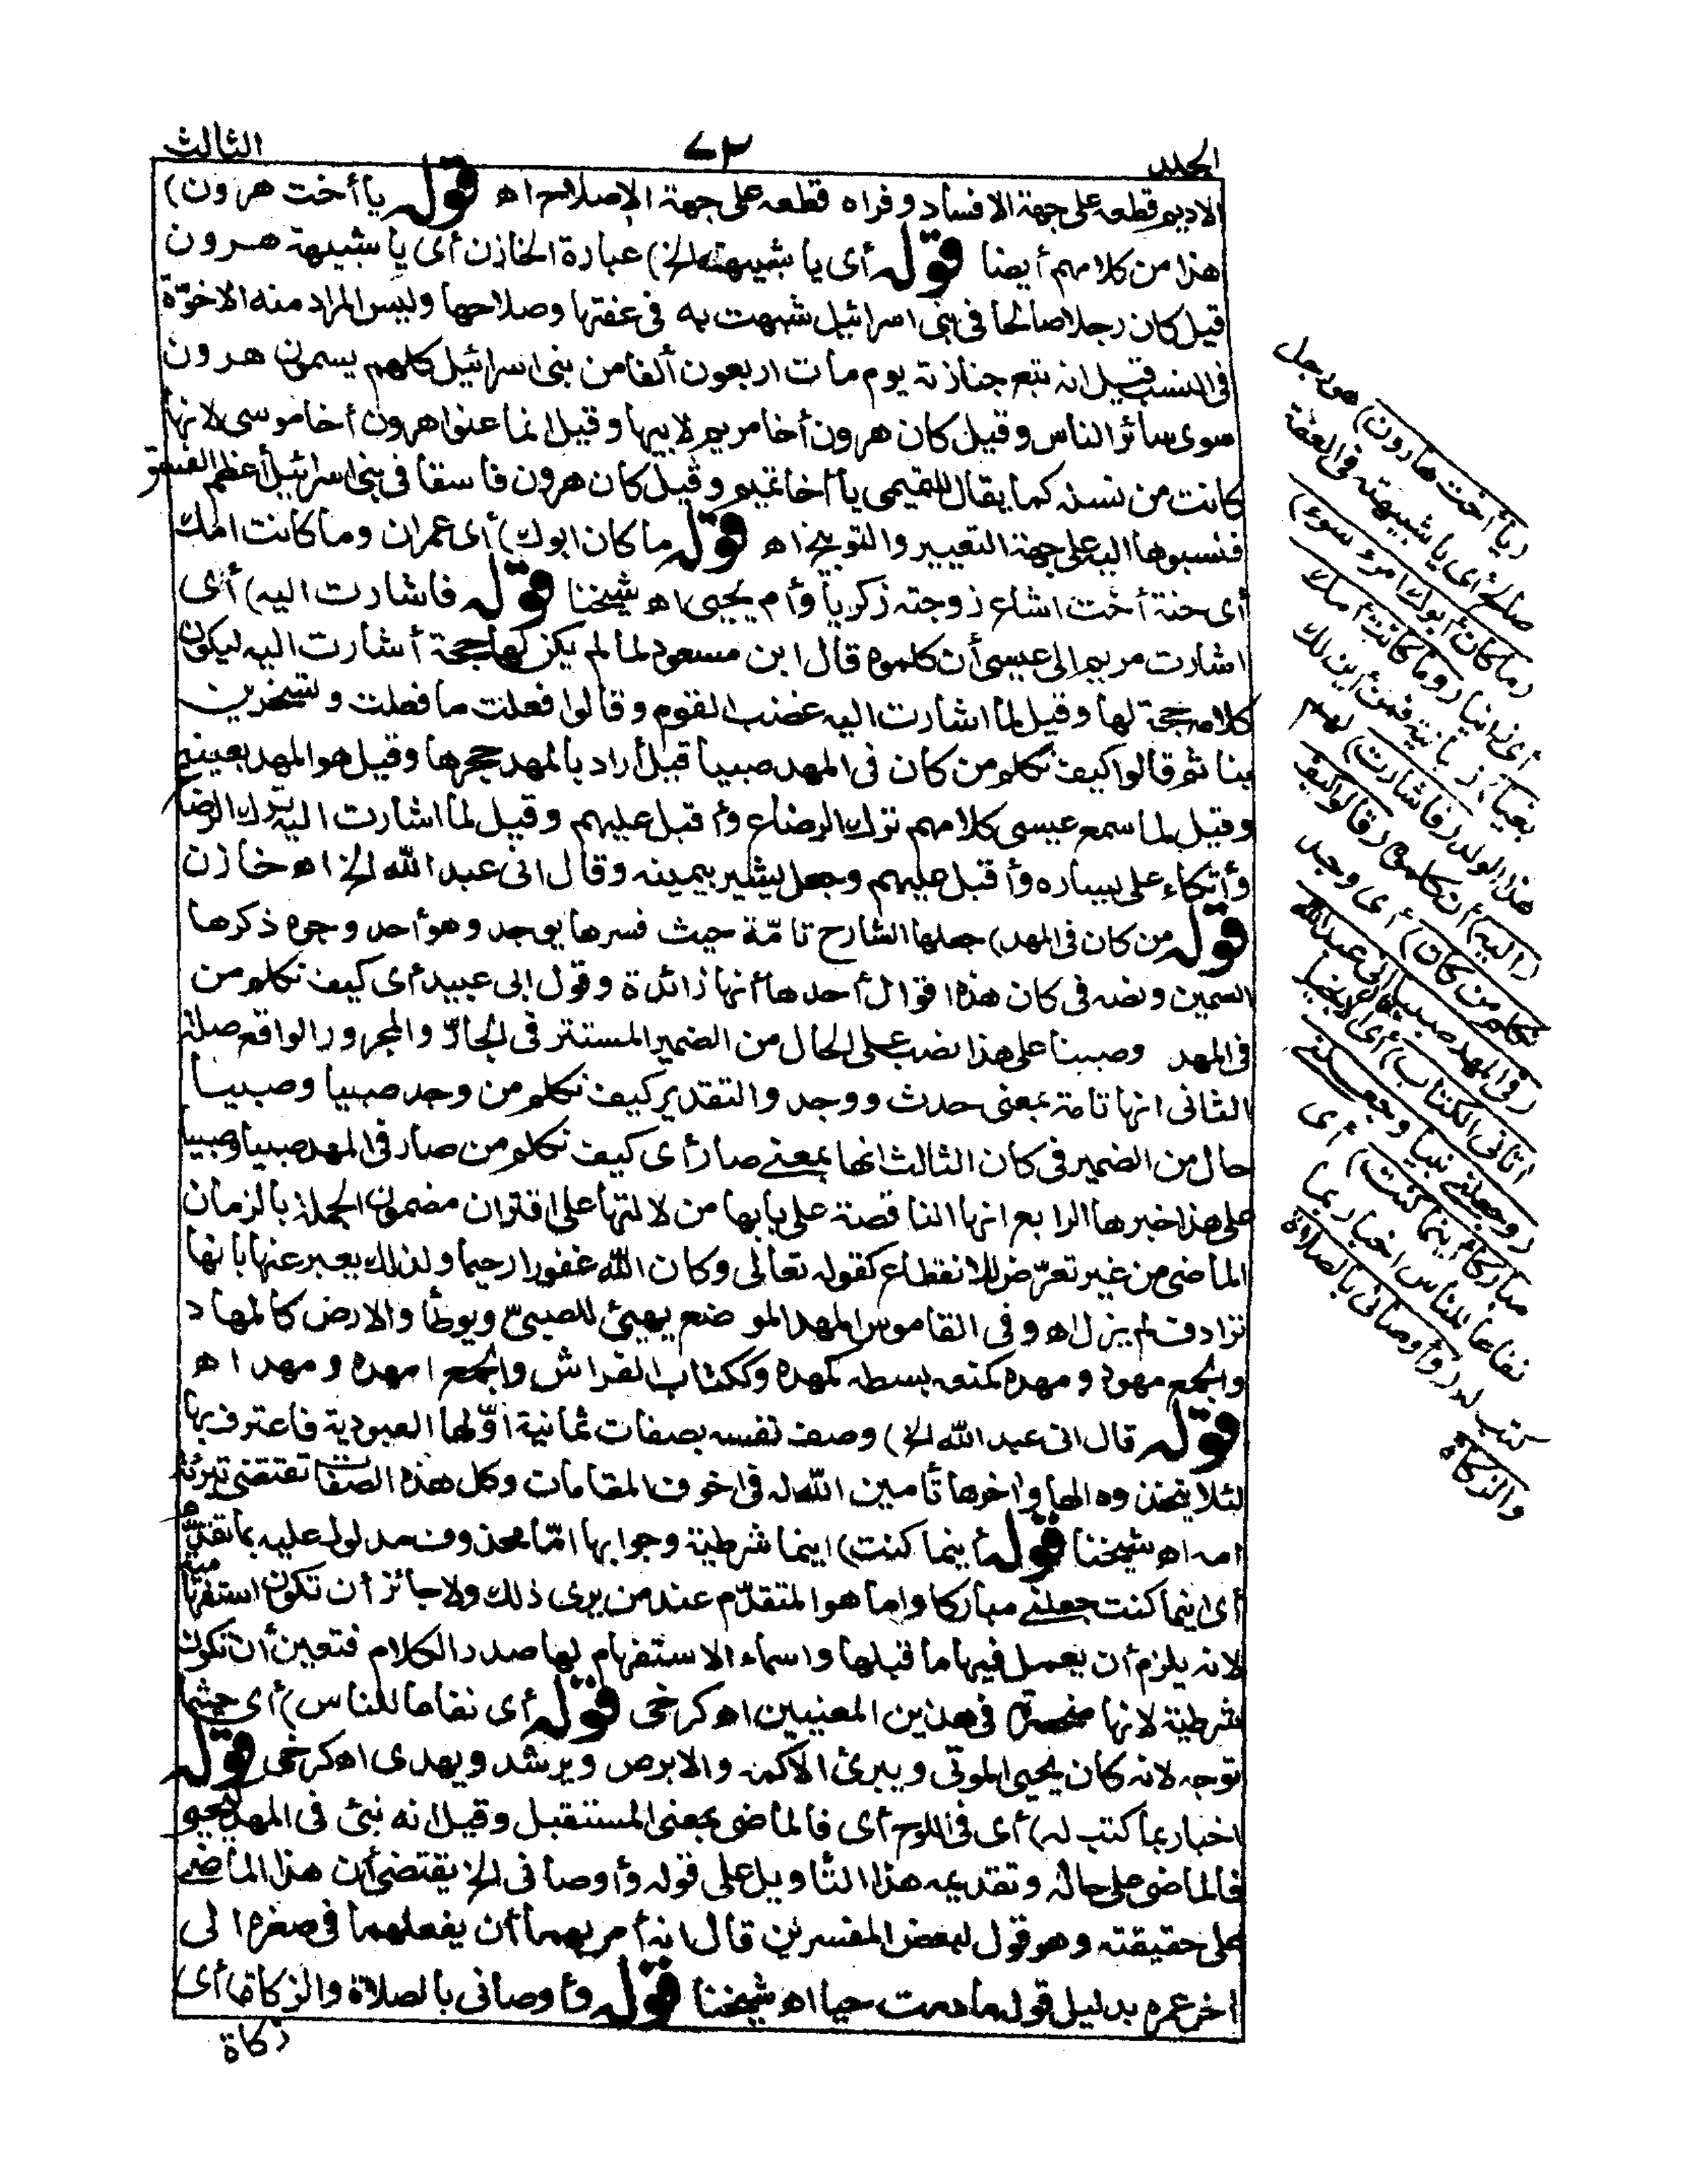 الجلد
٧٣
الثالث
الاديم قطعه على جهة الافساد وفراه قطعه على جهة الاصلاح اه قوله يا أخت هرون)
هذا من كلامهم أيضا قوله أى يا شبيهته الخ) عبارة الخازن أى يا شبيهة هرون
قيل كان رجلا صالحا فى بنى اسرائيل شبهت به فى عفتها وصلاحها وليس المراد منه الاخوّة
فى النسب قيل انه تبع جنازته يوم مات اربعون ألفا من بنى اسرائيل كلهم يسمون هرون
سوى سائر الناس وقيل كان هرون أخا مريم لابيها وقيل انما عنوا هرون أخا موسى لانها
كانت من نسله كما يقال للتميمى يا أخا تميم وقيل كان هرون فاسقا فى بنى اسرائيل أعظم الفسق
فنسبوها اليه على جهة التعيير والتوبيخ اه قوله ما كان ابوك) أى عمران وما كانت امك
أى حنة أخت اشاع زوجته زكريا وأم يحيى اه شيخنا قوله فاشارت اليه) أى
اشارت مريم الى عيسى أن كلموه قال ابن مسعود لما لم يكن لها حجة أشارت اليه ليكون
كلامه حجة لها وقيل لما اشارت اليه غضب القوم وقالوا فعلت ما فعلت وتسخرين
بنا ثم قالوا كيف نكلم من كان فى المهد صبيا قيل أراد بالمهد حجرها وقيل هو المهد بعينه
وقيل لما سمع عيسى كلامهم ترك الرضاع وأقبل عليهم وقيل لما اشارت اليه ترك الرضاع
وأتكاء على يساره وأقبل عليهم وجعل يشير بيمينه وقال انى عبد الله الخ اه خازن
قوله من كان فى المهد) جعلها الشارح تامّة حيث فسرها بوجد وهو أحد وجوه ذكرها
السمين ونصه فى كان هذه اقوال أحدها أنها زائدة وقول ابى عبيد أى كيف نكلم من
فى المهد وصبينا على هذا نصب على الحال من الضمير المستتر فى الجارّ والمجرور الواقع صلة
الثانى انها تامة بمعنى حدث ووجد والتقدير كيف نكلم من وجد صبيا وصبيا
حال من الضمير فى كان الثالث انها بمعنى صار أى كيف نكلم من صار فى المهد صبيا وصبيا
على هذا خبرها الرابع انها الناقصة على بابها من لالتها على اقتران مضمون الجملة بالزمان
الماضى من غير تعرّض للانقطاع كقوله تعالى وكان الله غفورا رحيما ولذلك يعبر عنها بانها
ترادف لم يزل اه وفى القاموس المهد الموضع يهيئ للصبىّ ويوطأ والارض كالمهاد
والجمع مهود ومهده كمنعه بسطه كمهده وككتاب الفراش والجمع امهده ومهد اه
قوله قال انى عبد الله الخ) وصف نفسه بصفات ثمانية اوّلها العبودية فاعترف بها
لئلا يتخذوه الها واخرها تأمين الله له فى اخوف المقامات وكل هذه الصفات تقتضى تبرئة
امه اه شيخنا قوله أينما كنت) اينما شرطية وجوابها امّا محذوف مدلول عليه بما تقدّم
أى اينما كنت جعلنى مباركا واما هو المتقدّم عند من يرى ذلك ولا جائز أن تكون استفهامية
لانه يلزم أن يعمل فيها ما قبلها واسماء الاستفهام لها صدر الكلام فتعين أن تكون
شرطية لانها منحصرة فى هذين المعنيين اه كرخى قوله أى نفاعا للناس) أى حيثما
توجه لانه كان يحيى الموتى ويبرئ الاكمه والابرص ويرشد ويهدى اه كرخى قوله
اخبار بما كتب له) أى فى اللوح أى فالماضى بمعنى المستقبل وقيل انه نبئ فى المهد
فالماضى على حاله وتقديمه هذا التأويل على قوله وأوصانى الخ يقتضى أن هذا الماضى
على حقيقته وهو قول لبعض المفسرين قال انه أمر بهما أن يفعلهما فى صغره الى
اخر عمره بدليل قوله ما دمت حيا اه شيخنا قوله وأوصانى بالصلاة والزكاة) أى
زكاة
(يا أخت هارون) هو رجل
صالح أى يا شبيهته فى العفة
(ما كان أبوك امرء سوء)
أى زانيا (وما كانت أمك
بغيا) زانية فمن أين لك
هذا الولد (فاشارت) لهم
(اليه) أن كلموه (قالوا كيف
نكلم من كان) أى وجد
(فى المهد صبيا قال انى عبد الله
اتانى الكتاب) أى الانجيل
(وجعلنى نبيا وجعلنى
مباركا أينما كنت) أى
نفاعا للناس اخبار بما
كتب له (وأوصانى بالصلاة
والزكاة